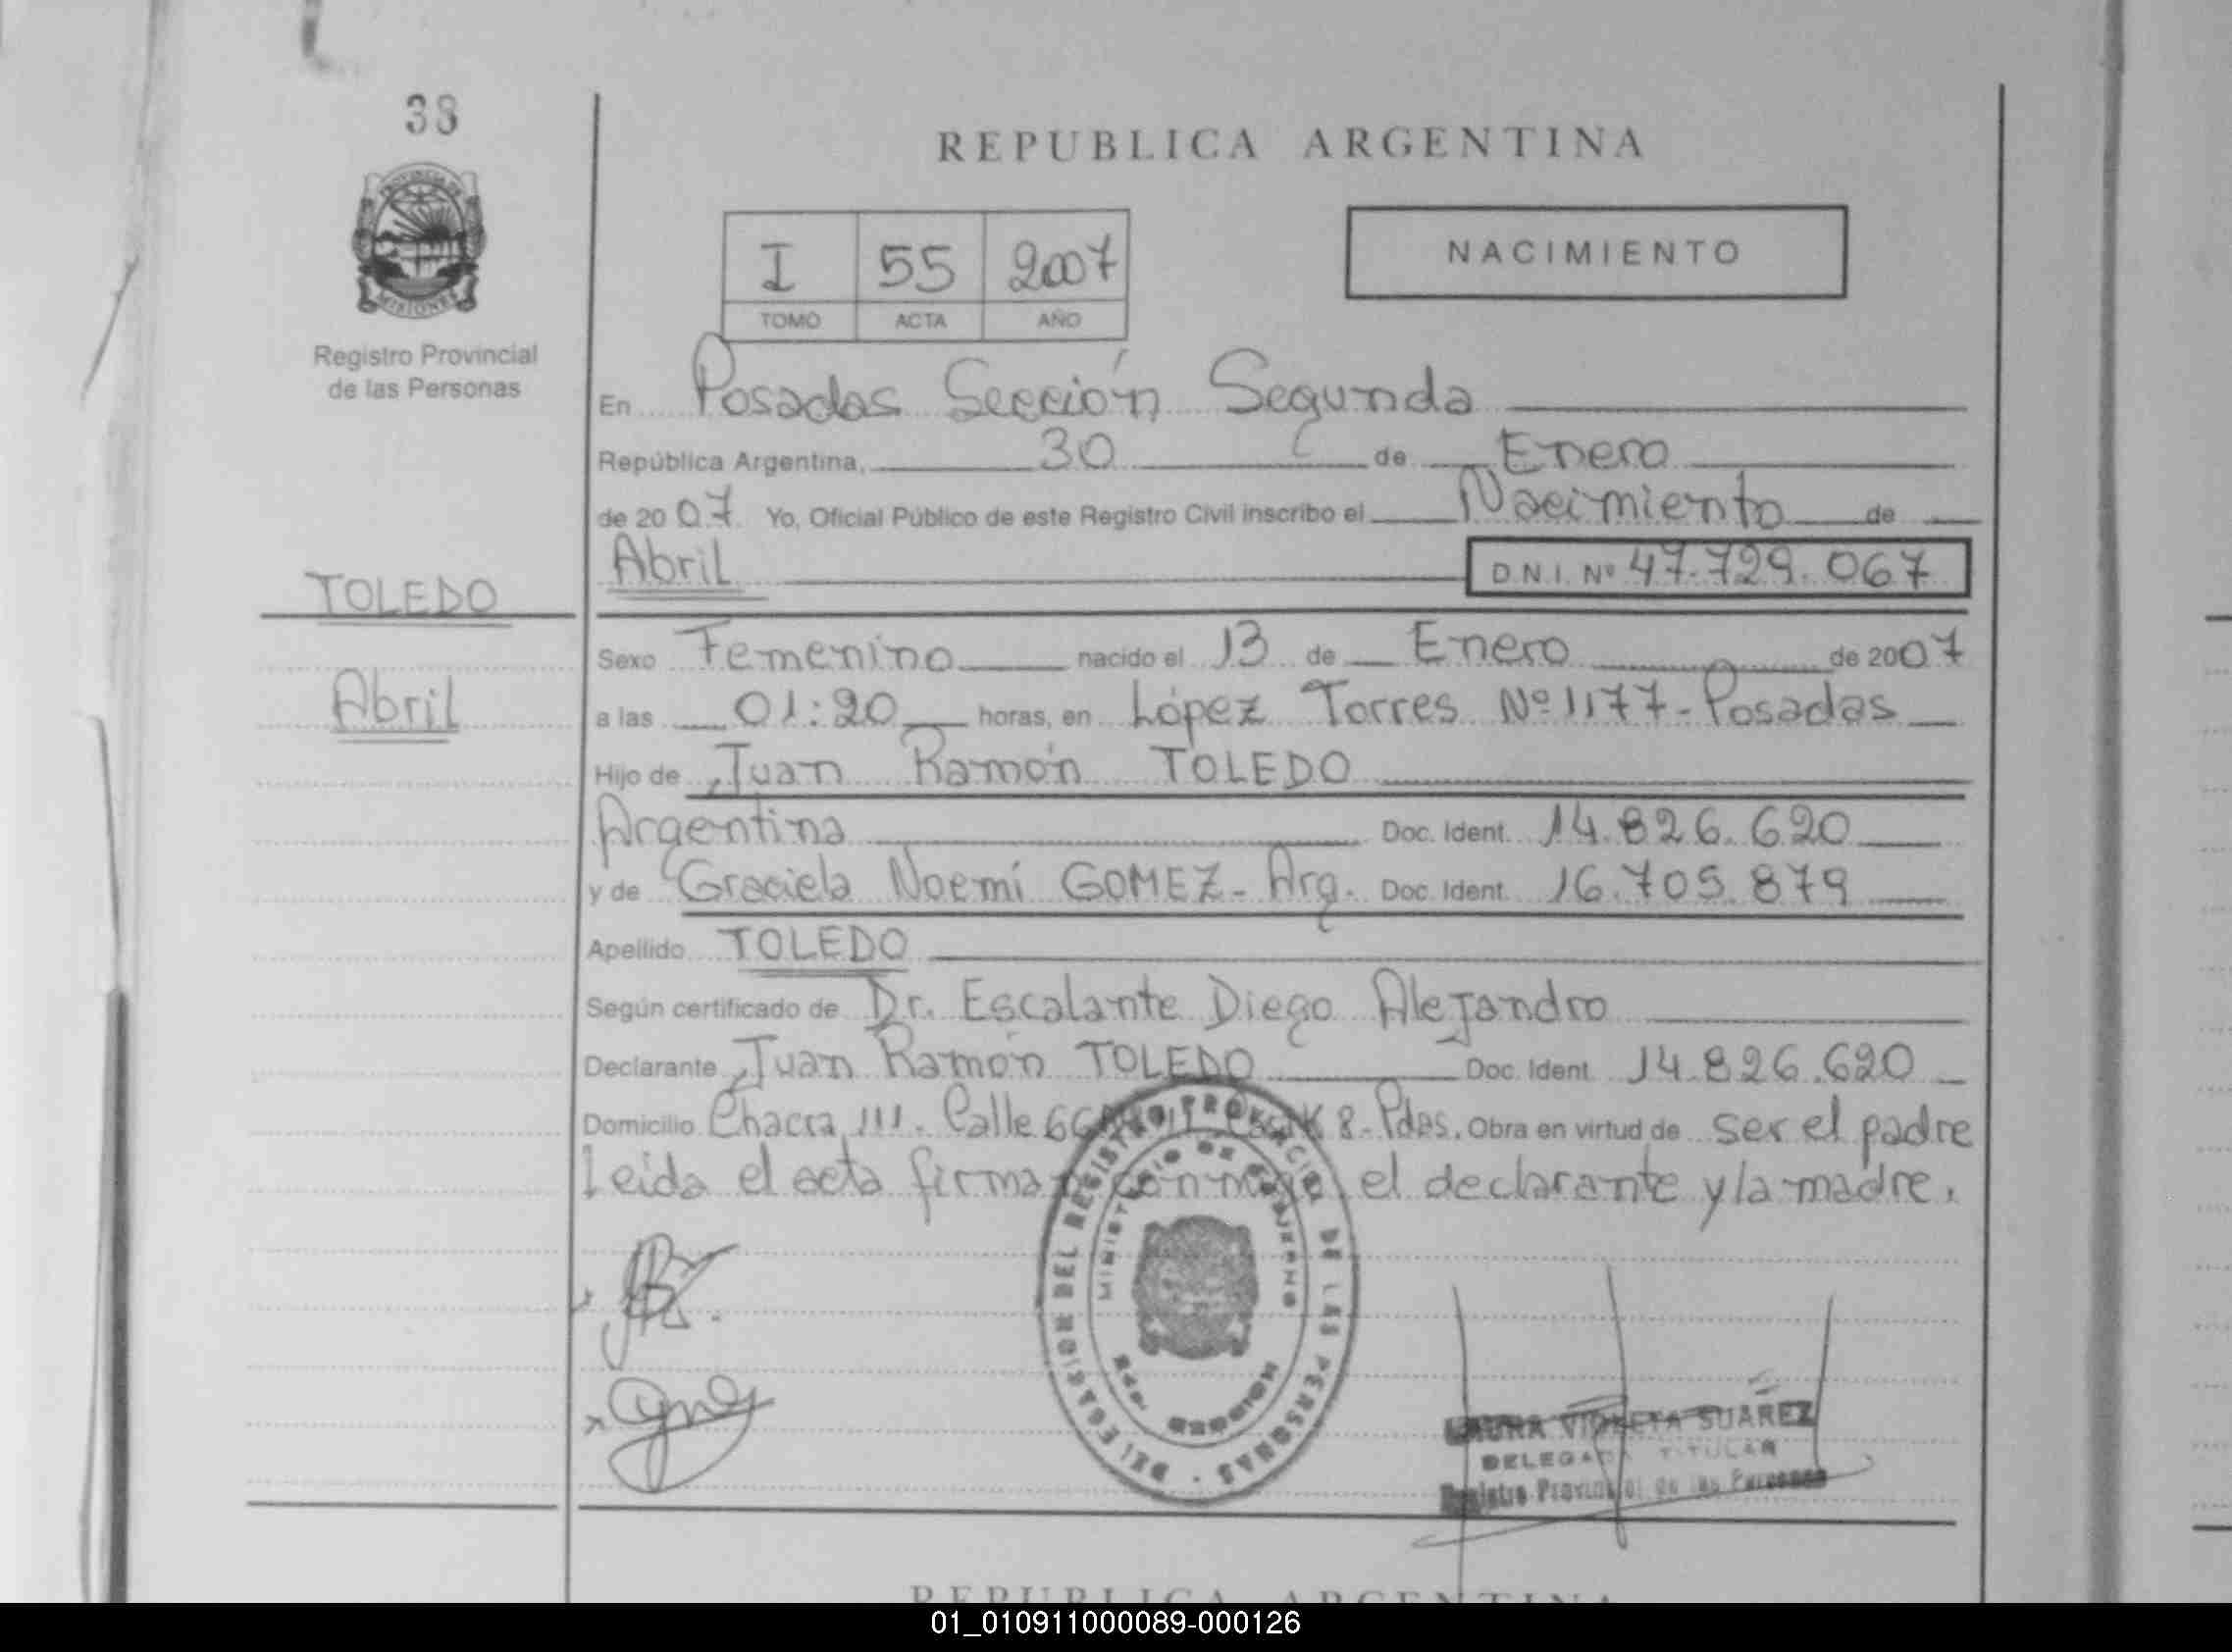 38
REPUBLICA ARGENTINA
PROVINCIA DE
MISIONES
I 55 2007
TOMO ACTA AÑO
NACIMIENTO
Registro Provincial
de las Personas
En Posadas Sección Segunda
República Argentina, 30 de Enero
de 2007 Yo, Oficial Público de este Registro Civil inscribo el Nacimiento de
Abril D.N.I. Nº 47.729.067
TOLEDO
Abril
Sexo Femenino nacido el 13 de Enero de 2007
a las 01:20 horas, en López Torres Nº 1177 - Posadas
Hijo de Juan Ramón TOLEDO
Argentina Doc. Ident. 14.826.620
y de Graciela Noemí GOMEZ - Arg. Doc. Ident. 16.705.879
Apellido TOLEDO
Según certificado de Dr. Escalante Diego Alejandro
Declarante Juan Ramón TOLEDO Doc. Ident. 14.826.620
Domicilio Chacra 111. Calle 8 - Pdas. Obra en virtud de ser el padre
Leida el acta firman conmigo el declarante y la madre.
DELEGACION DEL REGISTRO PROVINCIAL DE LAS PERSONAS
MINISTERIO DE GOBIERNO
MISIONES
LAURA VIOLETA SUAREZ
DELEGADA TITULAR
Registro Provincial de las Personas
REPUBLICA ARGENTINA
01_010911000089-000126